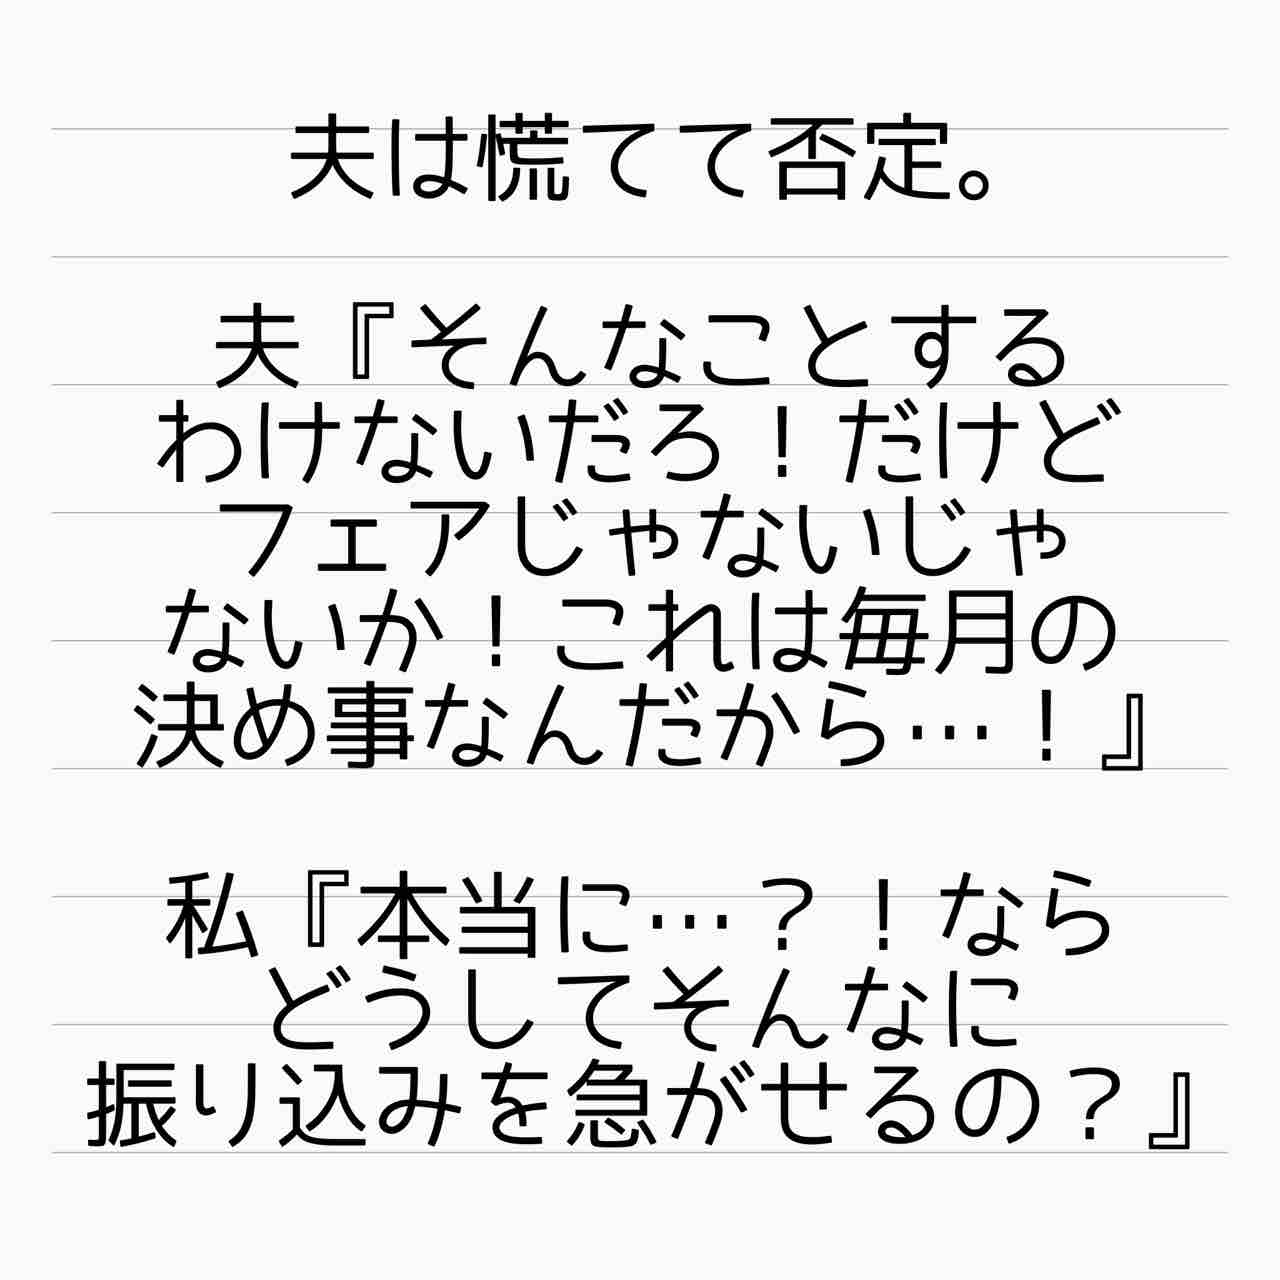 夫は慌てて否定。
夫『そんなことする
わけないだろ！だけど
フェアじゃないじゃ
ないか！これは毎月の
決め事なんだから…！』
私『本当に…？！なら
どうしてそんなに
振り込みを急がせるの？』